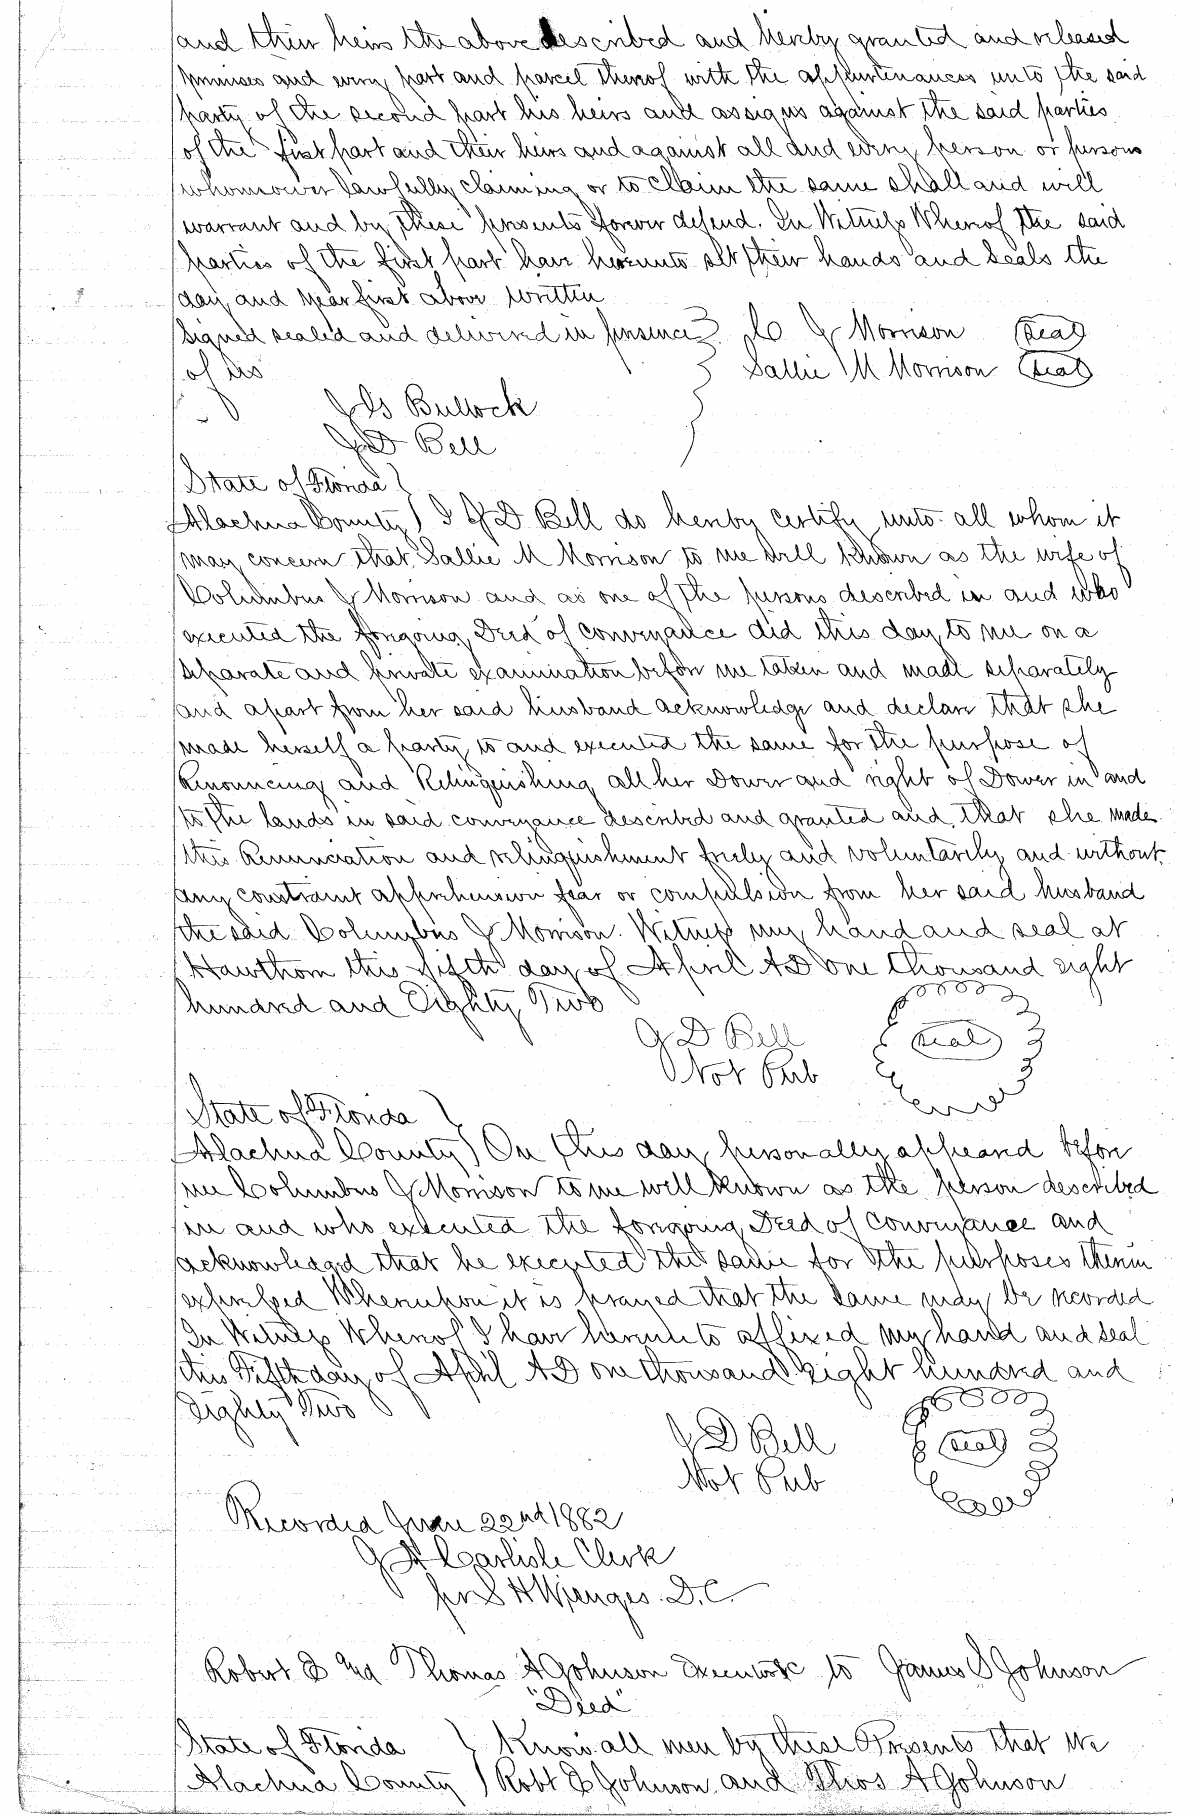 and their heirs the above described and hereby granted and released
premises and every part and parcel thereof with the appurtenances unto the said
party of the second part his heirs and assigns against the said parties
of the first part and their heirs and against all and every person or persons
whomsoever lawfully claiming or to claim the same shall and will
warrant and by these presents forever defend. In Witness Whereof the said
parties of the first part have hereunto set their hands and seals the
day and year first above written
Signed sealed and delivered in presence } C J Morrison (Seal)
of us Sallie M Morrison (Seal)
Bullock
J D Bell
State of Florida }
Alachua County ) I J D Bell do hereby certify unto all whom it
may concern that Sallie M Morrison to me well known as the wife of
Columbus J Morrison and as one of the persons described in and who
executed the foregoing Deed of conveyance did this day to me on a
separate and private examination before me taken and made separately
and apart from her said husband acknowledge and declare that she
made herself a party to and executed the same for the purpose of
Renouncing and Relinquishing all her Dower and right of Dower in and
to the lands in said conveyance described and granted and that she made
this Renunciation and relinquishment freely and voluntarily and without
any constraint apprehension fear or compulsion from her said husband
the said Columbus J Morrison. Witness my hand and seal at
Hawthorn this fifth day of April AD one thousand eight
hundred and Eighty Two
J D Bell (seal)
Not Pub
State of Florida }
Alachua County ) On this day personally appeared before
me Columbus J Morrison to me well known as the person described
in and who executed the foregoing Deed of Conveyance and
acknowledged that he executed the same for the purposes therein
expressed Whereupon it is prayed that the same may be recorded
In Witness Whereof I have hereunto affixed my hand and seal
this Fifth day of April AD one thousand Eight hundred and
Eighty Two
J D Bell (seal)
Not Pub
Recorded June 22nd 1882
J A Carlisle Clerk
per S H Wienges. D.C.
Robert Thomas A Johnson to James S Johnson
"Deed"
State of Florida } Know all men by these Presents that We
Alachua County ) Robt Johnson and Thos A Johnson